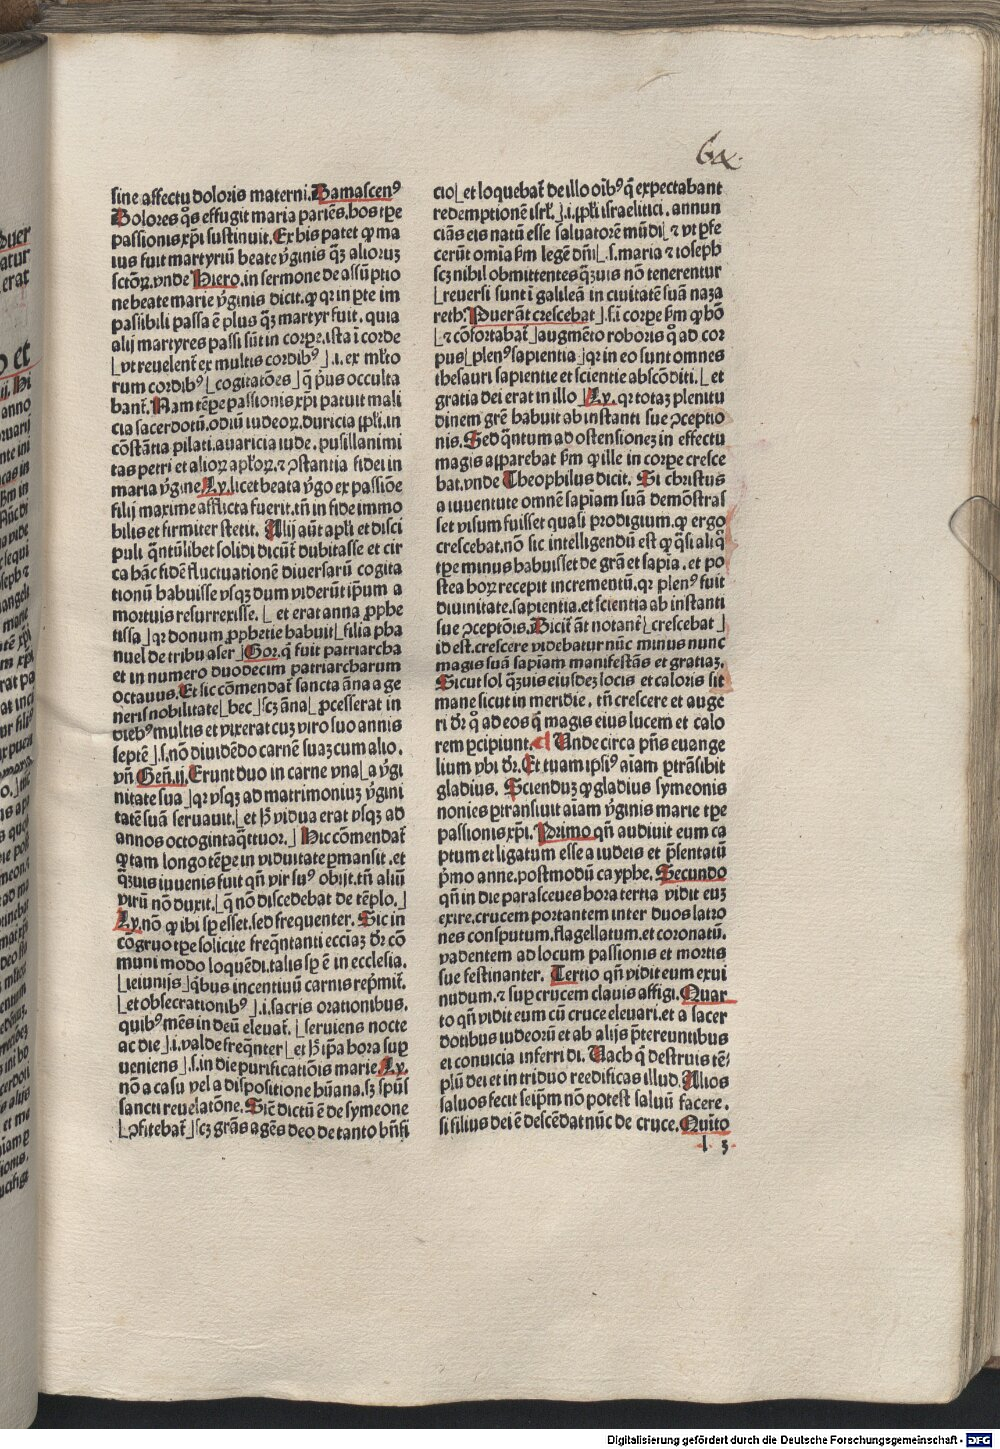 6x.
sine affectu doloris materni. Damascenꝰ
Dolores q̊s effugit maria pariẽs. hos tp̃e
passionis xp̃i sustinuit. Ex his patet ꝙ ma
ius fuit martyriũ beate ṽginis q̃ȝ alioruȝ
sctõꝝ. vnde Hiero. in sermone de assũptio
ne beate marie ṽginis dicit. ꝙ qꝛ in ꝑte im
passibili passa ẽ plus q̃ȝ martyr fuit. quia
alij martyres passi sũt in corꝑe. ista ĩ corde
⌊vt reuelent̃ ex multis cordibꝰ⌋.i. ex ml̃to
rum cordibꝰ⌊cogitatões⌋q̃ pͥus occulta
bant̃. Nam tẽꝑe passionis xp̃i patuit mali
cia sacerdotũ. odiũ iudeoꝝ. duricia pp̃li. in
cõstãtia pilati. auaricia iude. pusillanimi
tas petri et alioꝝ aplõꝝ. ꝛ ꝯstantia fidei in
maria ṽgine Ly. licet beata ṽgo ex passiõe
filij maxime afflicta fuerit. tñ in fide immo
bilis et firmiter stetit. Alij aũt apli et disci
puli q̃ntũlibet solidi dicũt̃ dubitasse et cir
ca hãc fidẽ fluctuationẽ diuersarũ cogita
tionũ habuisse vsqȝ dum viderũt ip̃um a
mortuis resurrexisse. ⌊et erat anna ꝓphe
tissa⌋qꝛ donum ꝓphetie habuit⌊filia pha
nuel de tribu aser⌋Gor. q̃ fuit patriarcha
et in numero duodecim patriarcharum
octauus. Et sic cõmendat̃ sancta ãna a ge
neris nobilitate⌊hec⌋scȝ ãna⌊ꝓcesserat in
diebꝰ multis et vixerat cuȝ viro suo annis
septẽ⌋.s. nõ diuidẽdo carnẽ suaȝ cum alio.
vñ Geñ.ij. Erunt duo in carne vna⌊a ṽgi
nitate sua⌋qꝛ vsqȝ ad matrimoniuȝ ṽgini
tatẽ suã seruauit.⌊et h̃ vidua erat vsqȝ ad
annos octoginta q̃ttuor.⌋Hic cõmendat̃
ꝙ tam longo tẽꝑe in viduitate ꝑmansit. et
q̃ȝuis iuuenis fuit qñ vir suꝰ obijt. tñ aliũ
virũ nõ duxit.⌊q̃ nõ discedebat de tẽplo.⌋
Ly. nõ ꝙ ibi sp̃ esset. sed frequenter. Sic in
cõgruo tp̃e solicite freq̃ntanti ecciaȝ dr̃ cõ
muni modo loquẽdi. talis sp̃ ẽ in ecclesia.
⌊ieiunijs⌋q̃bus incentiuũ carnis repͥmit̃.
⌊et obsecrationibꝰ⌋.i. sacris orationibus.
quibꝰ mẽs in deũ eleuat̃. ⌊seruiens nocte
ac die⌋.i. valde freq̃nter⌊et h̃ ip̃a hora suꝑ
ueniens⌋.s. in die purificatiõis marie. Ly.
nõ a casu vel a dispositione hũana. sȝ spũs
sancti reuelatõne. Siẽ dictũ ẽ de symeone
⌊ꝯfitebat̃⌋scȝ grãs agẽs deo de tanto bñfi
cio⌊et loquebat̃ de illo oĩbꝰ q̃ expectabant
redemptionẽ isrl̃.⌋.i. pp̃li israelitici. annun
ciãs eis natũ esse saluatorẽ mũdi⌊ꝛ vt ꝑfe
cerũt omĩa ẜm legẽ dñi⌊.s. maria ꝛ ioseph
scȝ nihil obmittentes q̃ȝuis nõ tenerentur
⌊reuersi sunt ĩ galileã in ciuitatẽ suã naza
reth. Puer ãt crescebat⌋.s. ĩ corꝑe ẜm ꝙ hõ
⌊ꝛ cõfortabat̃⌋augmẽto roboris q̊ ad cor
pus⌊plenꝰ sapientia⌋qꝛ in eo sunt omnes
thesauri sapientie et scientie abscõditi. ⌊et
gratia dei erat in illo⌊Ly. qꝛ totaȝ plenitu
dinem grẽ habuit ab instanti sue ꝯceptio
nis. Sed q̃ntum ad ostensioneȝ in effectu
magis apparebat ẜm ꝙ ille in corꝑe cresce
bat. vnde Theophilus dicit. Si christus
a iuuentute omnẽ sapiam suã demõstras
set visum fuisset quasi prodigium. ꝙ ergo
crescebat. nõ sic intelligendũ est ꝙ q̃si aliq̊
tp̃e minus habuisset de grã et sapia. et po
stea hoꝝ recepit incrementũ. qꝛ plenꝰ fuit
diuinitate. sapientia. et scientia ab instanti
sue ꝯceptõis. Dicit̃ ãt notant̃⌊crescebat⌋
id est. crescere videbatur nũc minus nunc
magis suã sapiam manifestãs et gratiaȝ.
Sicut sol q̃ȝuis eiusdeȝ locis et caloris sit
mane sicut in meridie. tñ crescere et auge
ri dr̃ q̊ ad eos q̃ magis eius lucem et calo
rem ꝑcipiunt. Unde circa pñs euange
lium vbi dr̃. Et tuam ipsiꝰ aiam ꝑtrãsibit
gladius. Sciendȝ ꝙ gladius symeonis
nonies ꝑtransiuit aiam ṽginis marie tp̃e
passionis xp̃i. Primo qñ audiuit eum ca
ptum et ligatum esse a iudeis et p̃sentatũ
pͥmo anne. postmodũ cayphe. Secundo
qñ in die parasceues hora tertia vidit euȝ
exire. crucem portantem inter duos latro
nes consputum. flagellatum. et coronatũ.
vadentem ad locum passionis et mortis
sue festinanter. Tertio qñ vidit eum exui
nudum. ꝛ suꝑ crucem clauis affigi. Quar
to qñ vidit eum cũ cruce eleuari. et a sacer
dotibus iudeorũ et ab alijs p̃tereuntibus
ei conuicia inferri di. Vach q̃ destruis tẽ
plũ dei et in triduo reedificas illud. Alios
saluos fecit seip̃m nõ potest saluũ facere.
si filius dei ẽ descẽdat nũc de cruce. Quĩto
l 3
Digitalisierung gefördert durch die Deutsche Forschungsgemeinschaft - DFG